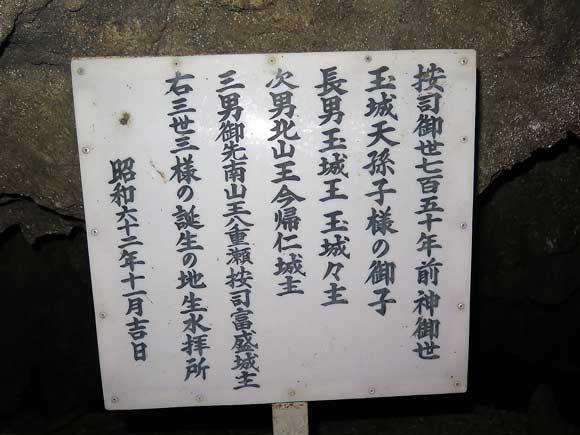 按司御世七百五十年前神御世
玉城天孫子様の御子
長男玉城王玉城々主
次男北山王今帰仁城主
三男御先南山王八重瀬按司富盛城主
右三世三様の誕生の地生水拝所
昭和六十二年十一月吉日